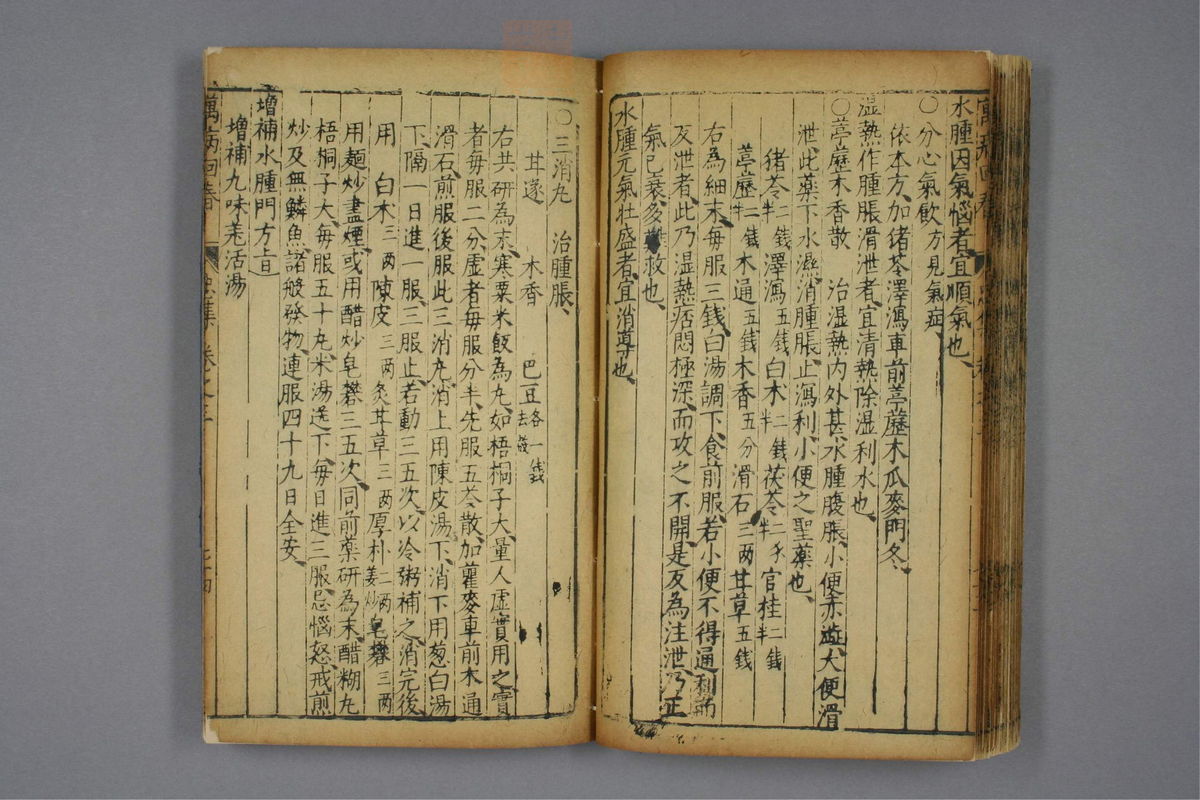 水腫因氣惱者宜順氣也
〇分心氣飲方見氣症
依本方加猪苓澤瀉車前葶藶木瓜麥門冬
湿熱作腫脹滑泄者宜清熱除湿利水也
〇葶藶木香散 治湿熱内外甚水腫腹脹小便赤澁大便滑
泄此薬下水濕消腫脹止瀉利小便之聖藥也
猪苓二錢半 澤瀉五錢 白木二錢半 茯苓二錢半 官桂二錢半
葶藶二錢半 木通五錢 木香五分 滑石三两 甘草五錢
右為細末毎服三錢白湯調下食前服若小便不得通利而
反泄者此乃湿熱痞悶極深而攻之不開是反為注泄乃正
氣已衰多難救也
水腫元氣壮盛者宜消導也
〇三消丸 治腫脹
甘遂 木香 巴豆去殻各一錢
右共研為末寒粟米飯為丸如梧桐子大量人虚實用之實
者毎服二分虚者毎服分半先服五苓散加瞿麥車前木通
滑石煎服後服此三消丸消上用陳皮湯下消下用葱白湯
下隔一日進一服三服止若動三五次以冷粥補之消完後
用 白术三两 陳皮三两 炙甘草三两 厚朴二两姜炒 皂礬三两
用麺炒盡煙或用醋炒皂礬三五次同前薬研為末醋糊丸
梧桐子大毎服五十丸米湯送下毎日進三服忌惱怒戒煎
炒及無鱗魚諸般發物連服四十九日全安
増補水腫門方旨
増補九味羌活湯
萬病回春